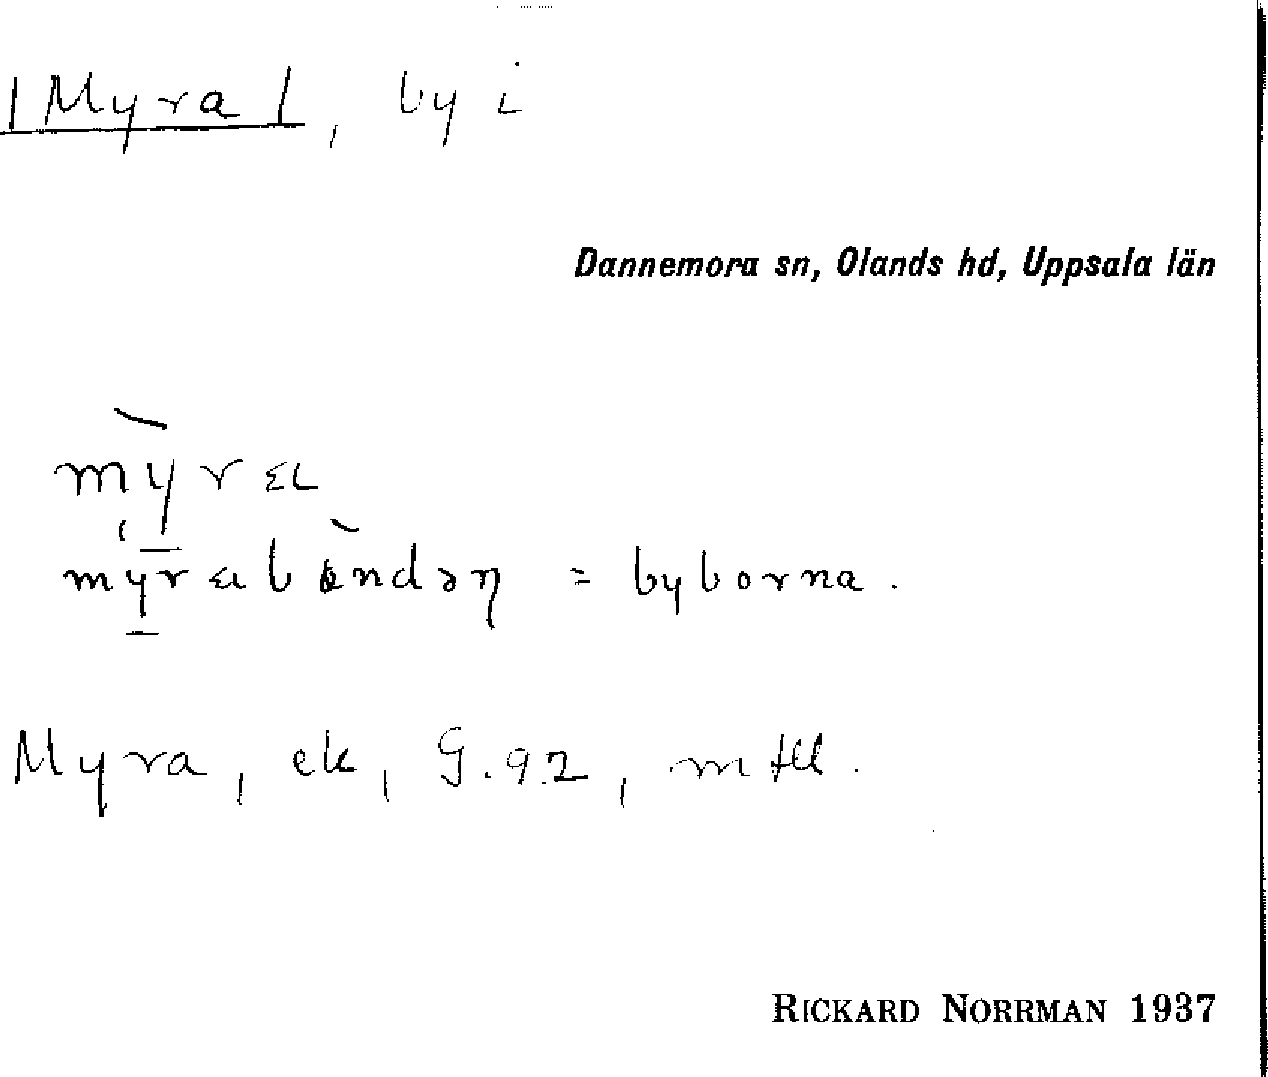 |Myra|, by i
Dannemora sn, Olands hd, Uppsala län
= byborna.
Myra, ek, G.92, mtll.
RICKARD NORRMAN 1937